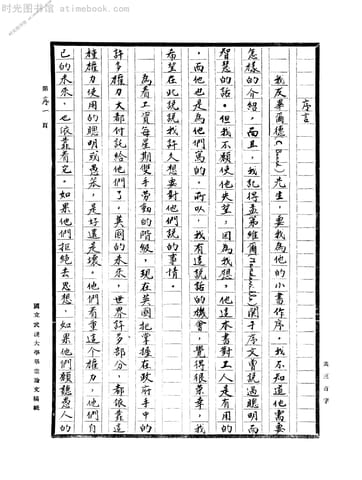 时光图书馆 - atimebook.com
共三百字
序言
我友畢爾德(Beard)先生，要我為他的小書作序。我不知道他需要
怎樣的介紹，而且，我記得孟第維爾(Mandeville)關于序文曾説過聰明而
智慧的話。但我不願使他失望。因為我想，他這本書對工人是有用的
，而他也是為他們寫的。所以，我有這説話的機會，覺得很榮幸，我
希望在此説説我許久想要對他們説的事情。
為着工資每星期雙手勞動的階級，現在英國把掌握在政府手中的
許多權力大都付託給他們了。英國的未來，世界許多部分，都依靠這
種權力使用的聰明或愚笨，是好還是壞。他們看重這個權力，他們自
己的未來，也依靠着它。如果他們拒絕去思想，如果他們願聽愚人的
第 序一 頁
國立武漢大學畢業論文稿紙